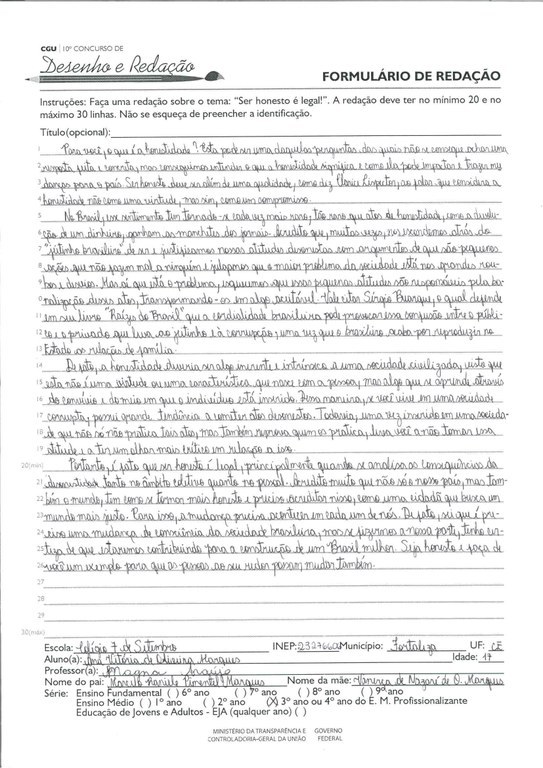 CGU | 10º CONCURSO DE
Desenho e Redação
FORMULÁRIO DE REDAÇÃO
Instruções: Faça uma redação sobre o tema: "Ser honesto é legal!". A redação deve ter no mínimo 20 e no
máximo 30 linhas. Não se esqueça de preencher a identificação.
Título(opcional):
1 Para você, o que é a honestidade? Esta pode ser uma daquelas perguntas das quais não se consegue achar uma
2 resposta feita e correta, mas conseguimos entender o que a honestidade significa e como ela pode impactar e trazer mu
3 danças para o país. Ser honesto deve ser além de uma qualidade, como dez Clarice Lispector, ao falar que considera a
4 honestidade não como uma virtude, mas sim, como um compromisso.
5 No Brasil, esse sentimento tem tornado-se cada vez mais raro; tão raro que atos de honestidade, como a devolu-
6 ção de um dinheiro, ganham as manchetes dos jornais. Acredito que, muitas vezes, nos escondemos atrás do
7 "jeitinho brasileiro" de ser e justificamos nossas atitudes desonestas com argumentos de que são pequenas
8 ações que não fazem mal a ninguém e julgamos que o maior problema da sociedade está nos grandes rou-
9 bos e desvios. Mas aí que está o problema, esquecemos que essas pequenas atitudes são responsáveis pela ba-
10 nalização desses atos, transformando-os em algo aceitável. Vale citar Sérgio Buarque, o qual defende
11 em seu livro "Raízes do Brasil" que a cordialidade brasileira pode provocar essa confusão entre o públi-
12 co e o privado que leva ao jeitinho e à corrupção; uma vez que o brasileiro acaba por reproduzir no
13 Estado as relações de família.
14 De fato, a honestidade deveria ser algo inerente e intrínseco a uma sociedade civilizada, visto que
15 esta não é uma virtude ou uma característica que nasce com a pessoa, mas algo que se aprende através
16 do convívio e do meio em que o indivíduo está inserido. Dessa maneira, se você vive em uma sociedade
17 corrupta, possui grande tendência a cometer atos desonestos. Todavia, uma vez inserido em uma socieda-
18 de que não só não pratica tais atos, mas também reprova quem os pratica, leva você a não tomar essa
19 atitude e a ter um olhar mais crítico em relação a isso.
20(min) Portanto, é fato que ser honesto é legal, principalmente quando se analisa as consequências da
21 desonestidade tanto no âmbito coletivo quanto no pessoal. Acredito muito que não só o nosso país, mas tam-
22 bém o mundo, tem como se tornar mais honesto e preciso acreditar nisso, como uma cidadã que busca um
23 mundo mais justo. Para isso, a mudança precisa acontecer em cada um de nós. De fato, sei que é pre-
24 ciso uma mudança de consciência da sociedade brasileira, mas se fizermos a nossa parte, tenho cer-
25 teza de que estaremos contribuindo para a construção de um "Brasil melhor. Seja honesto e faça de
26 você um exemplo para que as pessoas ao seu redor possam mudar também.
27
28
29
30(máx)
Escola: Colégio 7 de Setembro INEP: Município: Fortaleza UF: CE
Aluno(a): Ana Vitória de Oliveira Marques Idade: 17
Professor(a): Magna
Nome do pai: Marcelo Pimentel Marques Nome da mãe: Vanessa de Nazaré de O. Marques
Série: Ensino Fundamental ( ) 6º ano ( ) 7º ano ( ) 8º ano ( ) 9º ano
Ensino Médio ( ) 1º ano ( ) 2º ano (X) 3º ano ou 4º ano do E. M. Profissionalizante
Educação de Jovens e Adultos - EJA (qualquer ano) ( )
MINISTÉRIO DA TRANSPARÊNCIA E GOVERNO
CONTROLADORIA-GERAL DA UNIÃO FEDERAL